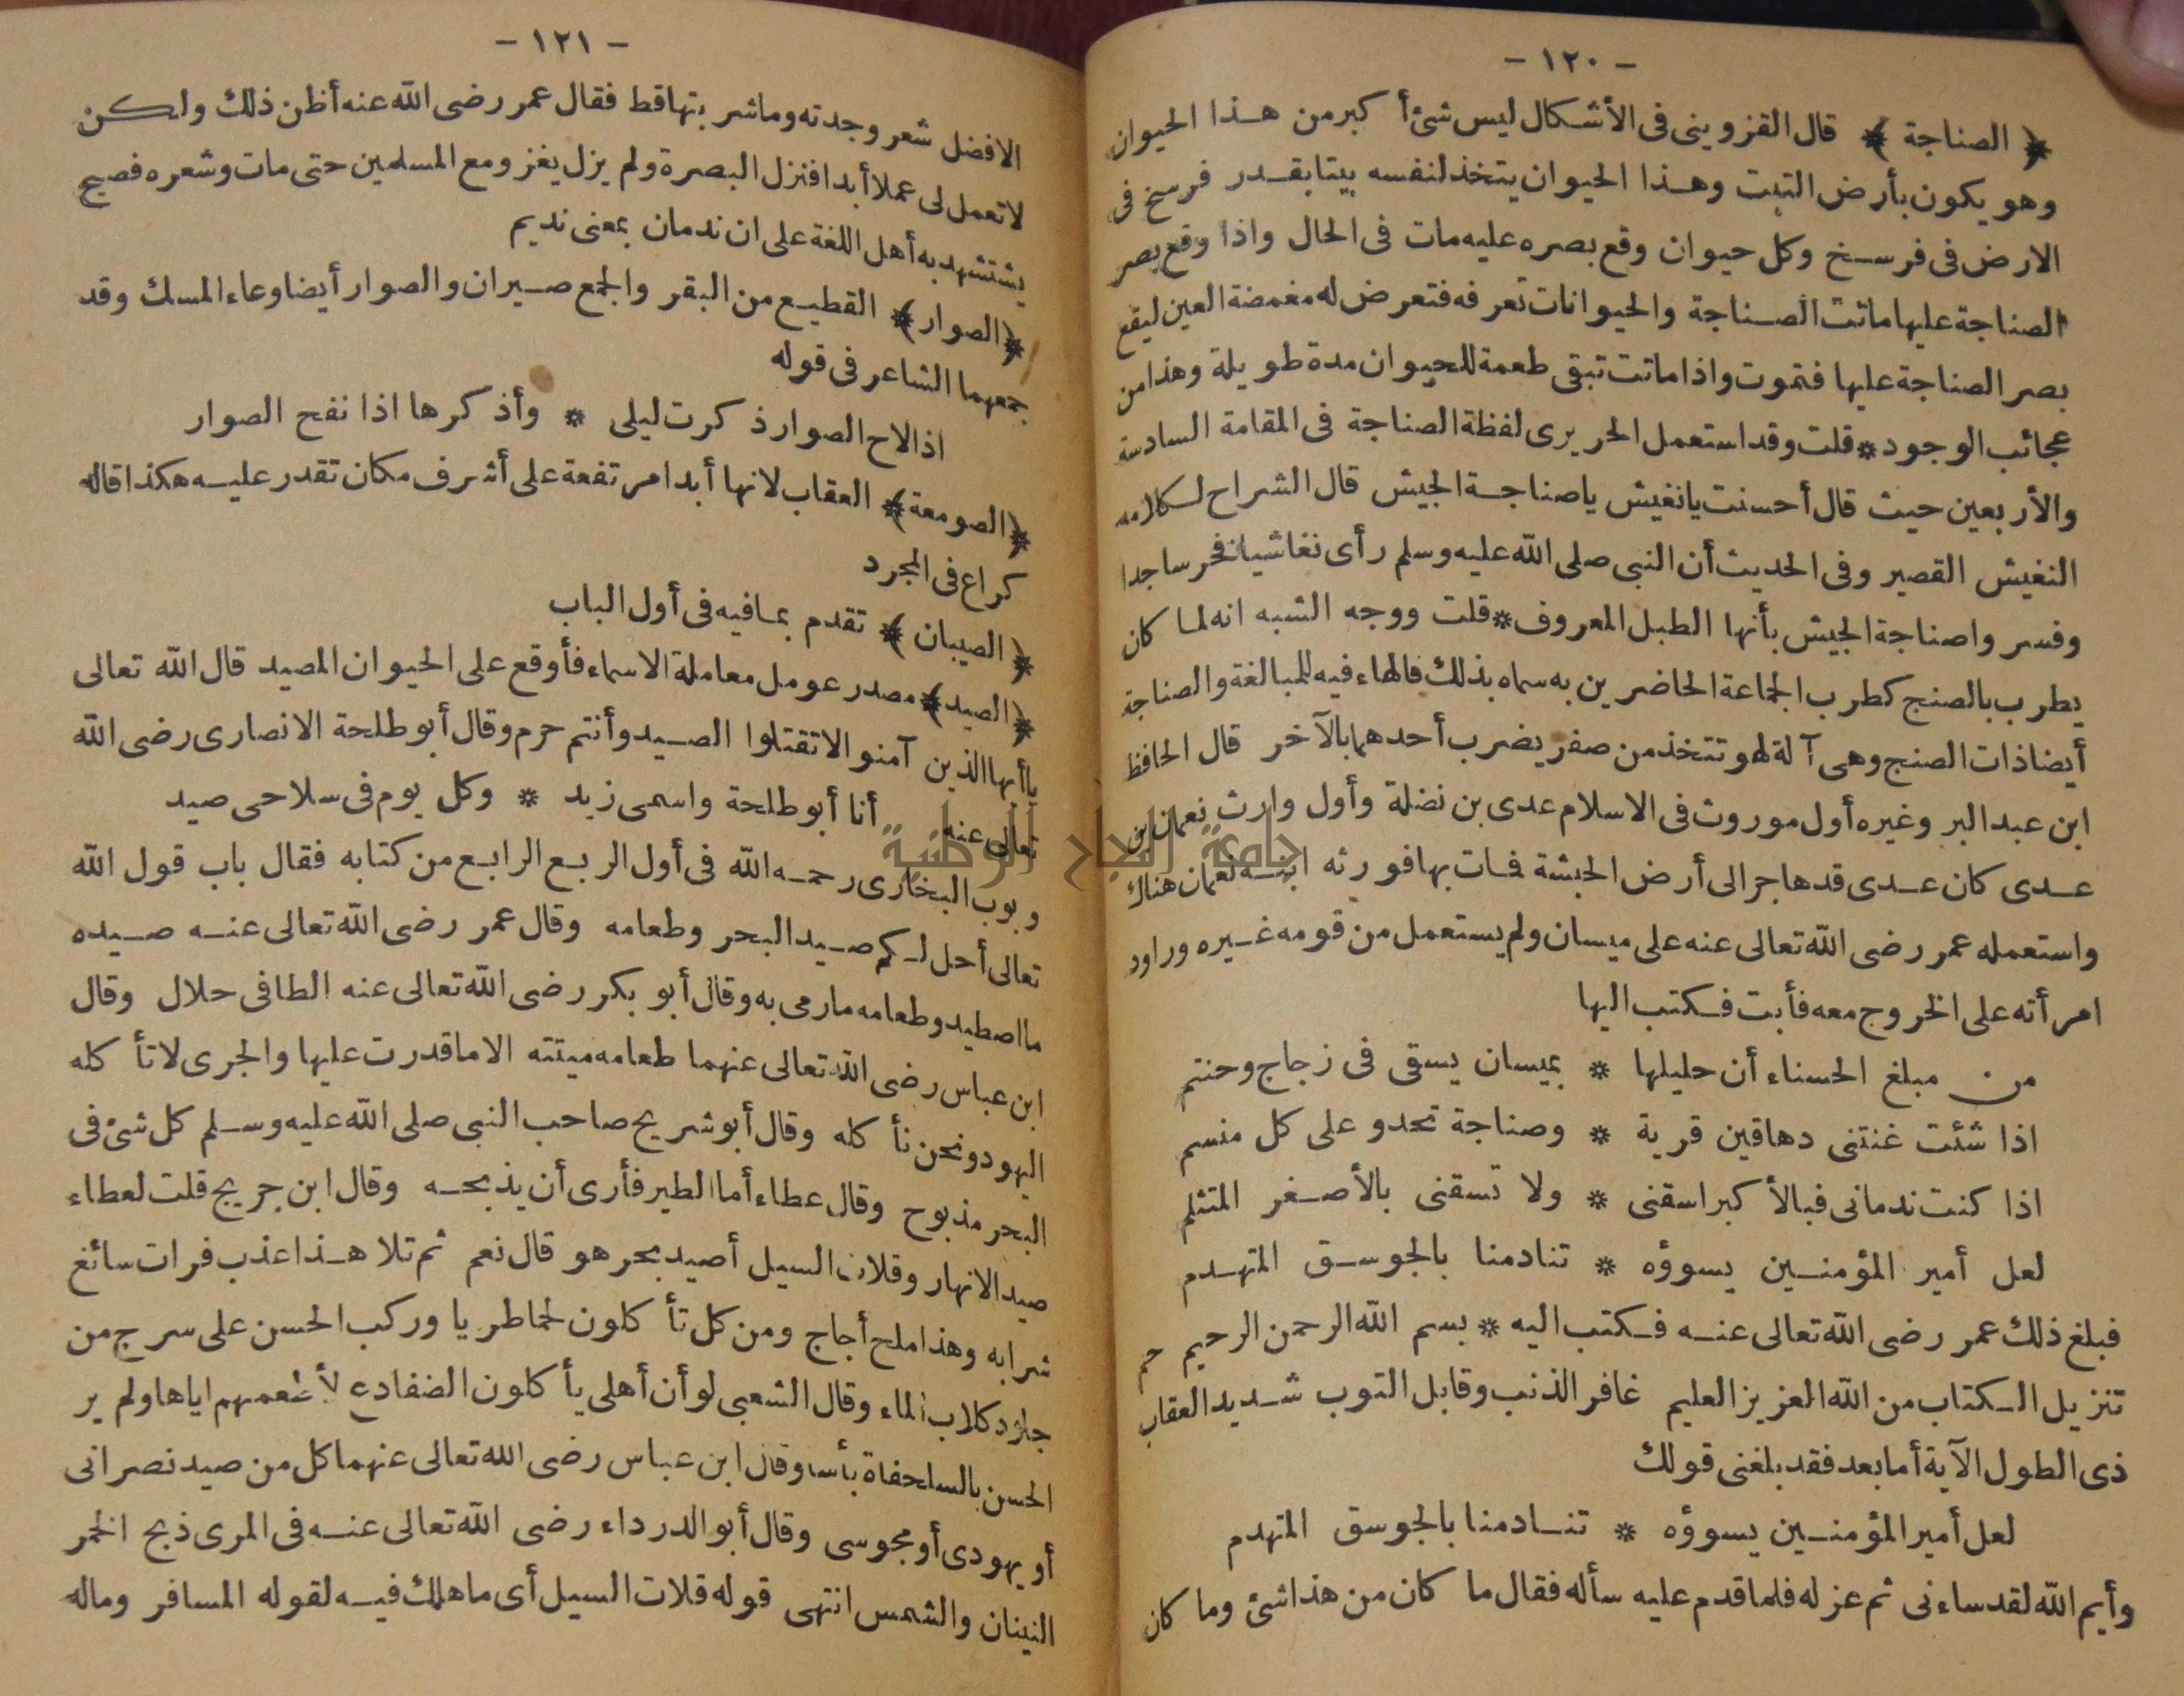 - ١٢٠ -
﴿ الصناجة ﴾ قال القزويني فى الأشكال ليس شئ أكبر من هذا الحيوان
وهو يكون بأرض التبت وهذا الحيوان يتخذ لنفسه بيتا بقدر فرسخ فى
الارض فى فرسخ وكل حيوان وقع بصره عليه مات فى الحال واذا وقع بصر
الصناجة عليها ماتت الصناجة والحيوانات تعرفه فتعرض له مغمضة العين ليقع
بصر الصناجة عليها فتموت واذا ماتت تبقى طعمة للحيوان مدة طويلة وهذا من
عجائب الوجود * قلت وقد استعمل الحريرى لفظة الصناجة فى المقامة السادسة
والأربعين حيث قال أحسنت يا نغيش يا صناجة الجيش قال الشراح لكلامه
النغيش القصير وفى الحديث أن النبى صلى الله عليه وسلم رأى نغاشيا فخر ساجدا
وفسروا صناجة الجيش بأنها الطبل المعروف * قلت ووجه الشبه انه لما كان
يطرب بالصنج كطرب الجماعة الحاضرين به سماه بذلك فالهاء فيه للمبالغة والصناجة
أيضا ذات الصنج وهى آلة لهو تتخذ من صفر يضرب أحدهما بالآخر قال الحافظ
ابن عبد البر وغيره أول موروث فى الاسلام عدى بن نضلة وأول وارث نعمان بن
عدى كان عدى قد هاجر الى أرض الحبشة فمات بها فورثه ابنه نعمان هناك
واستعمله عمر رضى الله تعالى عنه على ميسان ولم يستعمل من قومه غيره وراود
امرأته على الخروج معه فأبت فكتب اليها
من مبلغ الحسناء أن حليلها * بميسان يسقى فى زجاج وحنتم
اذا شئت غنتنى دهاقين قرية * وصناجة تحدو على كل منسم
اذا كنت ندمانى فبالأكبر اسقنى * ولا تسقنى بالأصغر المتثلم
لعل أمير المؤمنين يسوؤه * تنادمنا بالجوسق المتهدم
فبلغ ذلك عمر رضى الله تعالى عنه فكتب اليه * بسم الله الرحمن الرحيم حم
تنزيل الكتاب من الله العزيز العليم غافر الذنب وقابل التوب شديد العقاب
ذى الطول الآية أما بعد فقد بلغنى قولك
لعل أمير المؤمنين يسوؤه * تنادمنا بالجوسق المتهدم
وأيم الله لقد ساءنى ثم عزله فلما قدم عليه سأله فقال ما كان من هذا شئ وما كان
- ١٢١ -
الا فضل شعر وجدته وما شربتها قط فقال عمر رضى الله عنه أظن ذلك ولكن
لا تعمل لى عملا أبدا فنزل البصرة ولم يزل يغزو مع المسلمين حتى مات وشعره فصيح
يستشهد به أهل اللغة على ان ندمان بمعنى نديم
﴿ الصوار ﴾ القطيع من البقر والجمع صيران والصوار أيضا وعاء المسك وقد
جمعهما الشاعر فى قوله
اذا لاح الصوار ذكرت ليلى * وأذكرها اذا نفح الصوار
﴿ الصومعة ﴾ العقاب لانها أبدا مرتفعة على أشرف مكان تقدر عليه هكذا قاله
كراع فى المجرد
﴿ الصيبان ﴾ تقدم بما فيه فى أول الباب
﴿ الصيد ﴾ مصدر عومل معاملة الاسماء فأوقع على الحيوان المصيد قال الله تعالى
يا أيها الذين آمنوا لا تقتلوا الصيد وأنتم حرم وقال أبو طلحة الانصارى رضى الله
تعالى عنه أنا أبو طلحة واسمى زيد * وكل يوم فى سلاحى صيد
وبوب البخارى رحمه الله فى أول الربع الرابع من كتابه فقال باب قول الله
تعالى أحل لكم صيد البحر وطعامه وقال عمر رضى الله تعالى عنه صيده
ما اصطيد وطعامه ما رمى به وقال أبو بكر رضى الله تعالى عنه الطافى حلال وقال
ابن عباس رضى الله تعالى عنهما طعامه ميتته الا ما قدرت عليها والجرى لا تأكله
اليهود ونحن نأكله وقال أبو شريح صاحب النبى صلى الله عليه وسلم كل شئ فى
البحر مذبوح وقال عطاء أما الطير فأرى أن يذبحه وقال ابن جريج قلت لعطاء
صيد الانهار وقلات السيل أصيد بحر هو قال نعم ثم تلا هذا عذب فرات سائغ
شرابه وهذا ملح أجاج ومن كل تأكلون لحما طريا وركب الحسن على سرج من
جلود كلاب الماء وقال الشعبى لو أن أهلى يأكلون الضفادع لأطعمهم اياها ولم ير
الحسن بالسلحفاة بأسا وقال ابن عباس رضى الله تعالى عنهما كل من صيد نصرانى
أو يهودى أو مجوسى وقال أبو الدرداء رضى الله تعالى عنه فى المرى ذبح الخمر
النينان والشمس انتهى قوله قلات السيل أى ما هلك فيه لقوله المسافر وماله
جامعة النجاح الوطنية